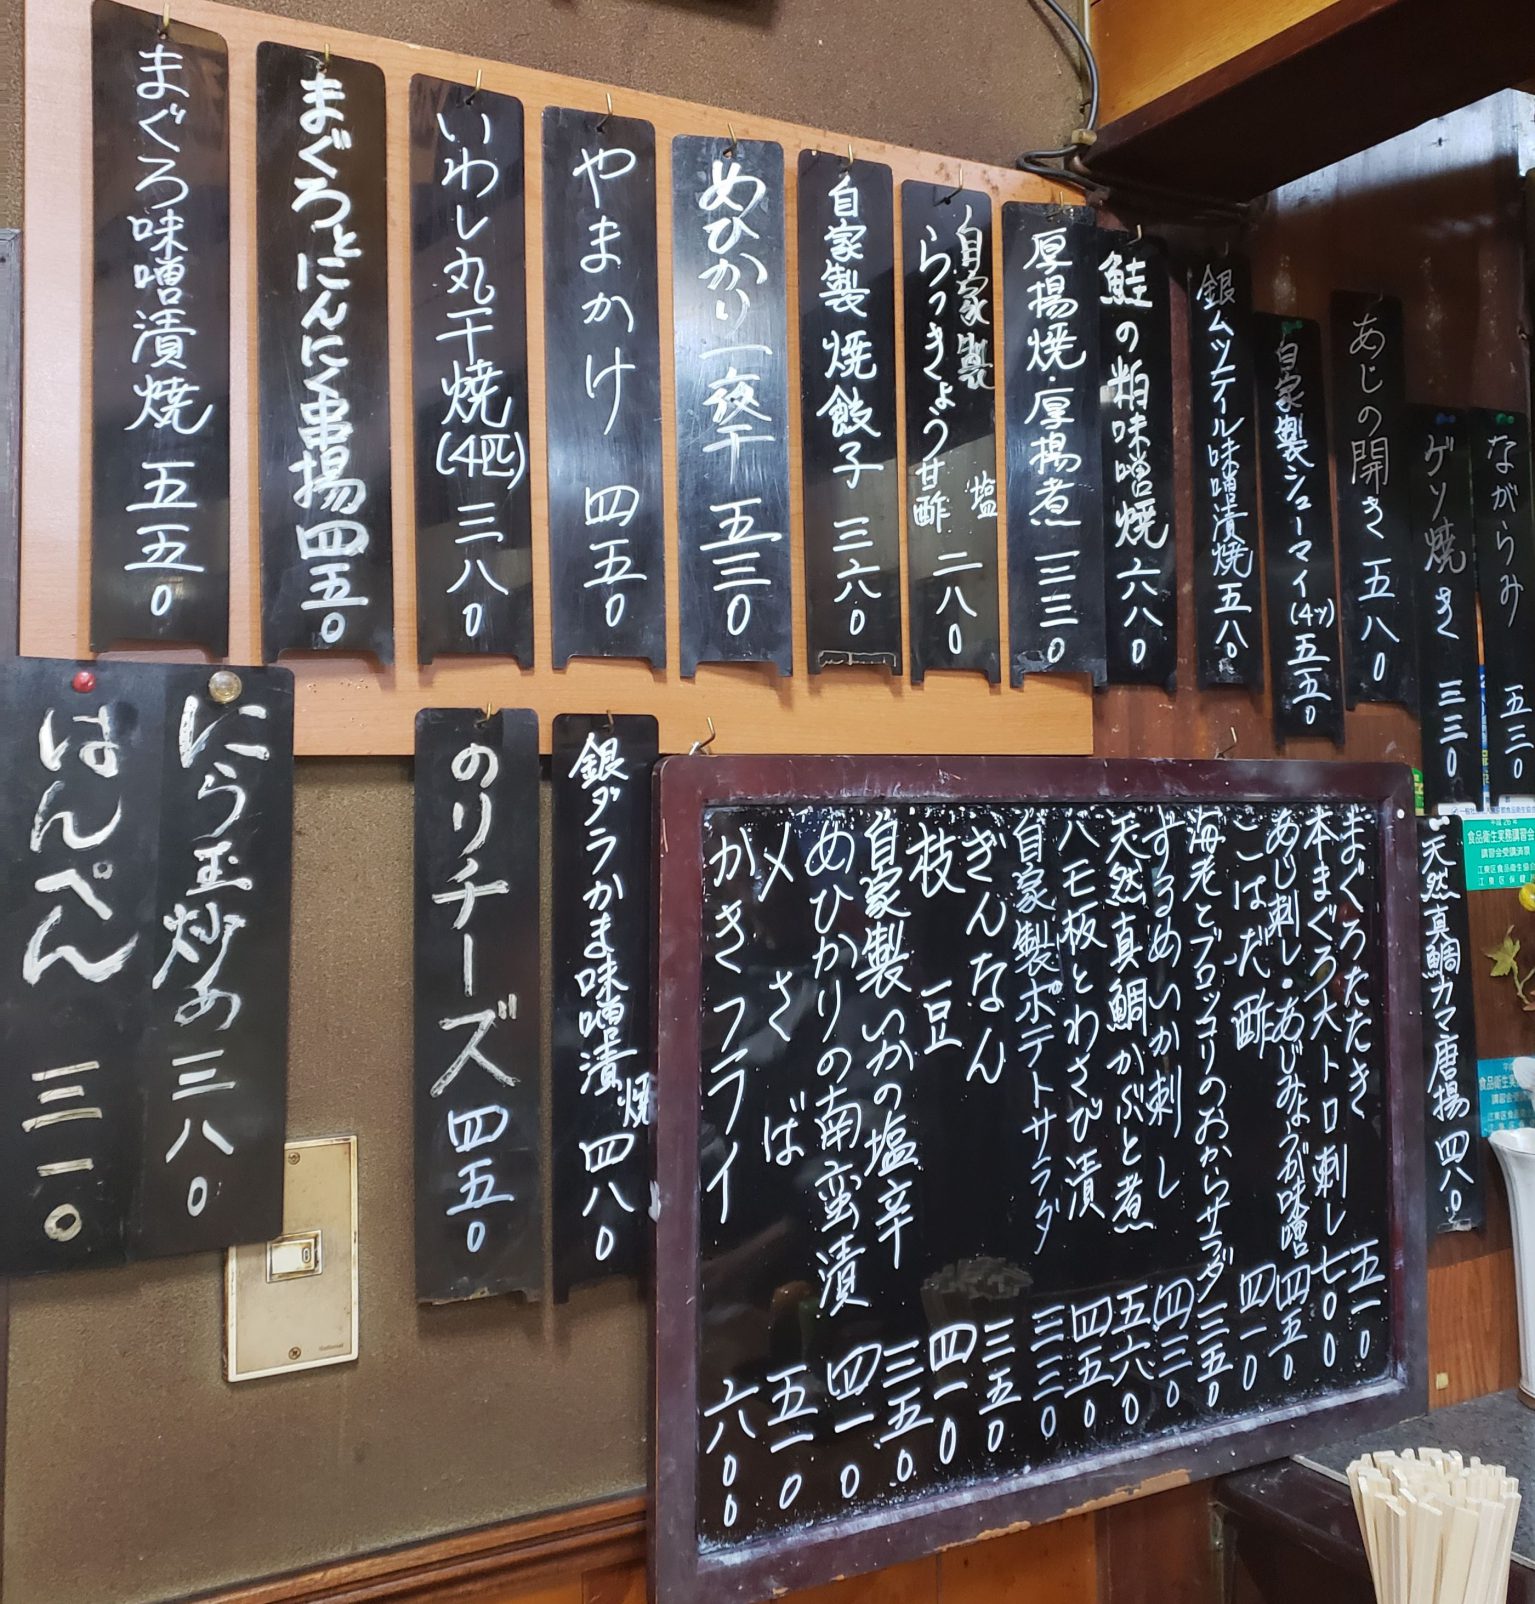 ながらみ 五三0
ゲソ焼き 三三0
あじの開き 五八0
自家製シューマイ(4ヶ) 五五0
銀ムツテイル味噌漬焼 五八0
鮭の粕味噌焼 六八0
厚揚焼・厚揚煮 三三0
自家製
らっきょう 甘酢 塩 二八0
自家製焼餃子 三六0
めひかり一夜干 五三0
やまかけ 四五0
いわし丸干焼(4匹) 三八0
まぐろとにんにく串揚 四五0
まぐろ味噌漬焼 五五0
天然真鯛カマ唐揚 四八0
まぐろたたき 五一0
本まぐろ大トロ刺し 七00
あじ刺し・あじみょうが味噌 四五0
こはだ酢 四一0
海老とブロッコリのおからサラダ 三五0
するめいか刺し 四三0
天然真鯛かぶと煮 五六0
ハモ板とわさび漬 四五0
自家製ポテトサラダ 三三0
ぎんなん 三五0
枝豆 四一0
自家製いかの塩辛 三五0
めひかりの南蛮漬 四一0
〆さば 五一0
かきフライ 六00
銀ダラかま味噌漬焼 四八0
のりチーズ 四五0
にら玉炒め 三八0
はんぺん 三一0
平成26年
食品衛生実務講習会
講習会受講済票
江東区食品衛生協会
江東区保健所